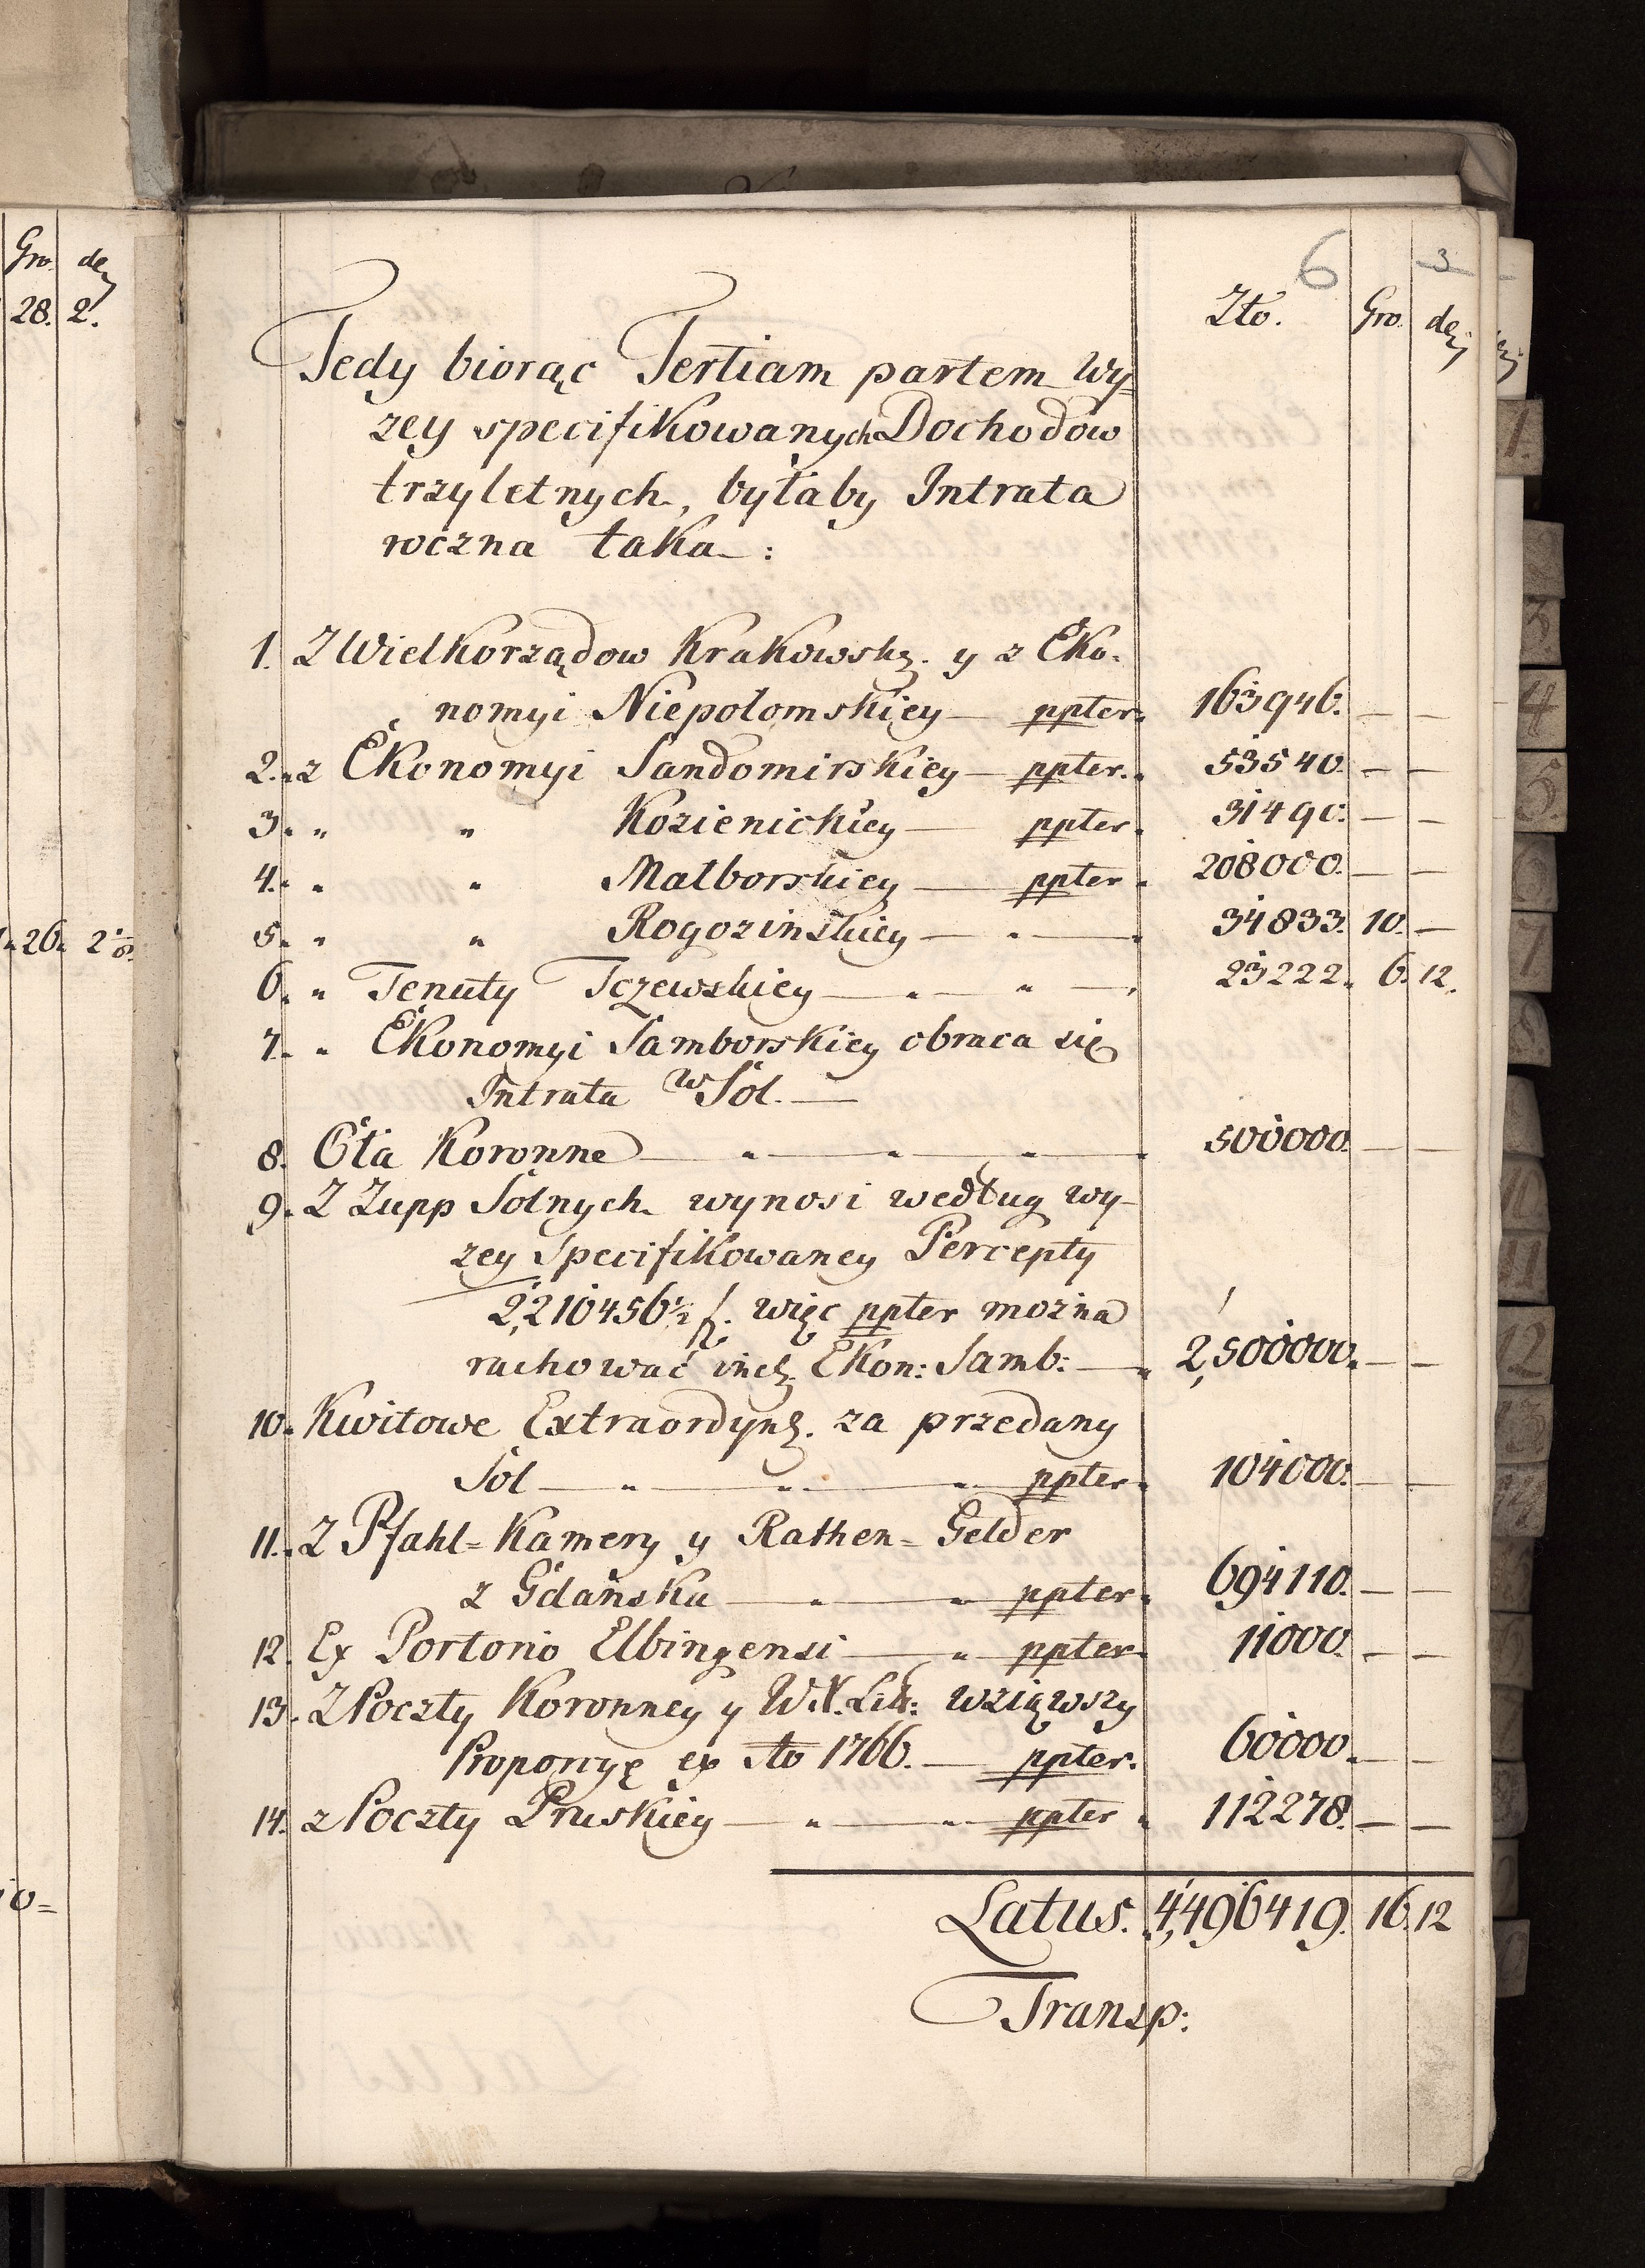 Gro. den
28. 2.
26. 2
6 3
Zło. Gro. den
Tedy biorąc Tertiam partem wy=
zey specifikowanych Dochodow
trzyletnych, byłaby Intrata
roczna taka :
1. Z Wielkorządow Krakowsk. y z Eko-
nomyi Niepolomskiey — ppter. 163946. — —
2. z Ekonomyi Sandomirskiey — ppter. 53540. — —
3. " " Kozienickiey — ppter. 31490. — —
4. " " Malborskiey — ppter. 208000. — —
5. " " Rogozinskiey — " — 34833. 10. —
6. " Tenuty Tczewskiey — " — " — 23222. 6. 12.
7. " Ekonomyi Samborskiey obraca się
Intrata w Sol. —
8. Cła Koronne — " — " — " — 500000. — —
9. Z Zupp Solnych wynosi według wy-
zey Specifikowaney Percepty
2,210456½ f. więc ppter mozna
rachować incl. Ekon: Samb: — 2,500000. — —
10. Kwitowe Extraordyn. za przedany
Sol — " — " — " ppter. 104000. — —
11. Z Pfahl=Kamery y Rathen=Gelder
z Gdańska — " — " ppter. 694110. — —
12. Ex Portorio Elbingensi — " — ppter. 11000. — —
13. Z Poczty Koronney y W.X.Lit: wziąwszy
Proporcyę ex Ao 1766. — ppter. 60000. — —
14. z Poczty Pruskiey — " — " ppter 112278. — —
Latus. 4,496419. 16. 12
Transp:
1.
3
4
5
7
11
12
13
14